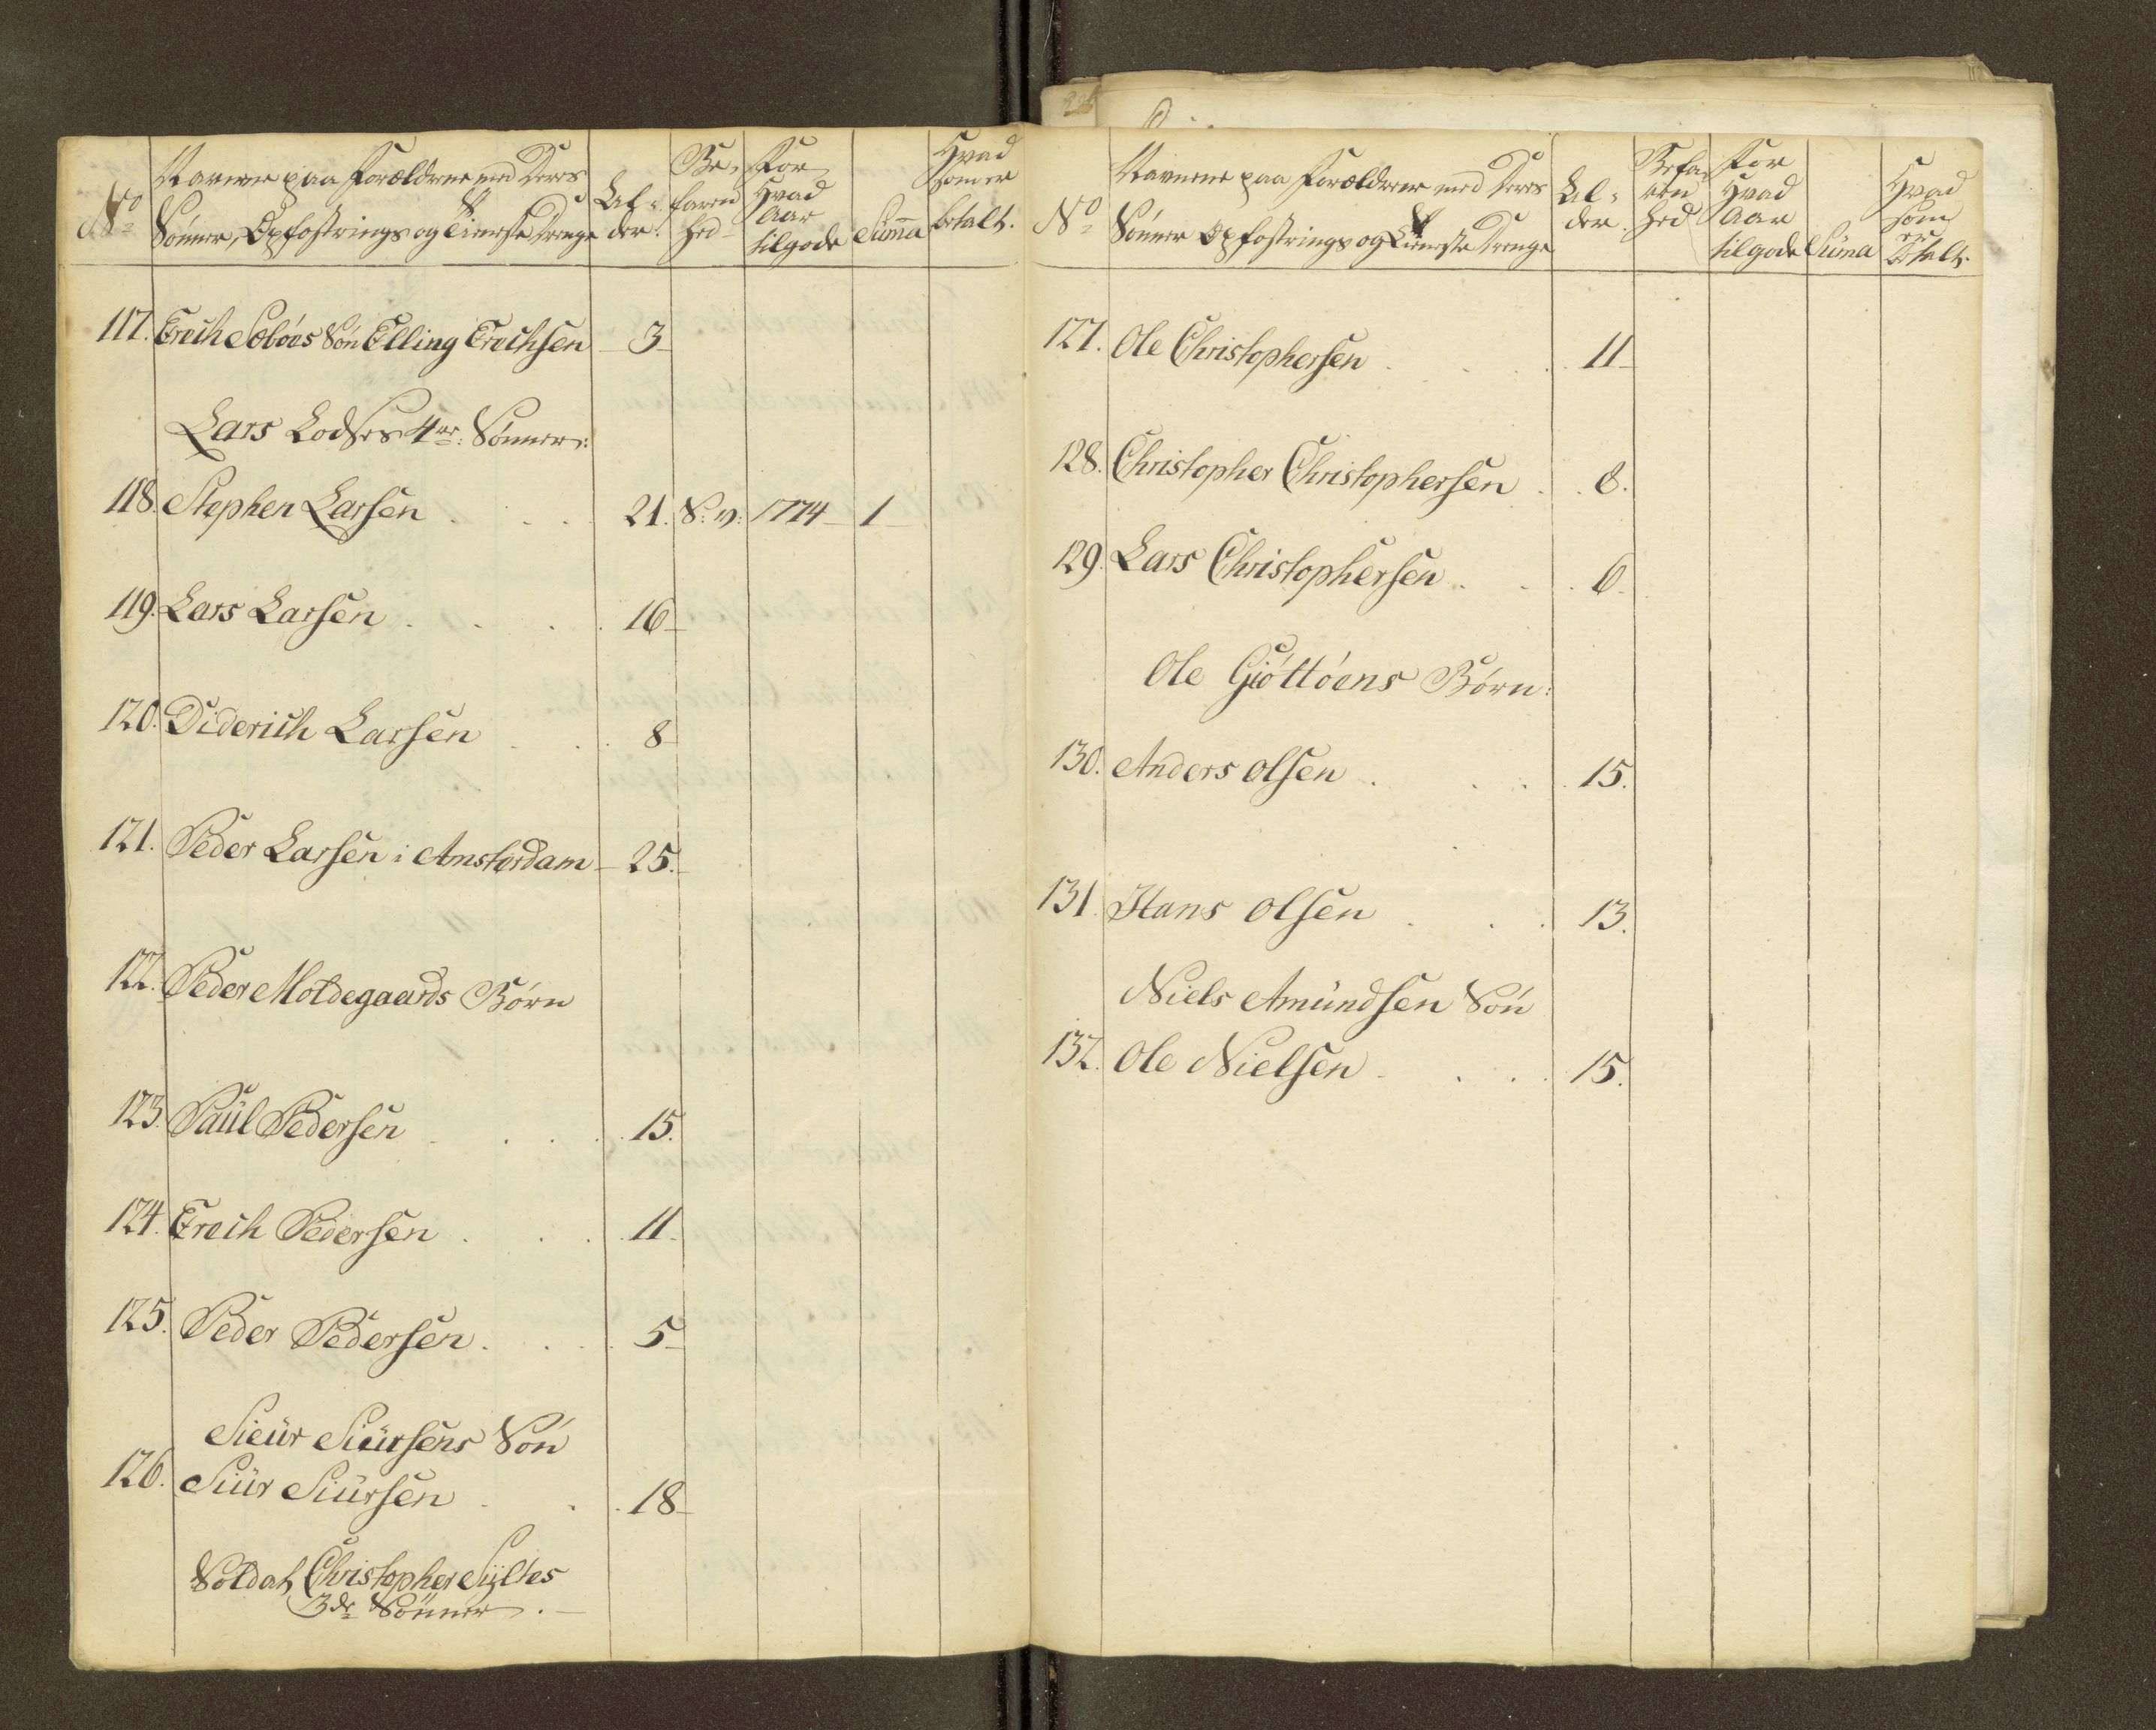 No
Navnene paa Forældrene med Deres
Sönner, Opfostrings og Tieneste Drenge
Al-
der.
Be-
faren
hed
For
Hvad
Aar
tilgode
Summa
Hvad
som er
betalt.
117. Erich Seböes Sön Elling Erichsen 3
Lars Lodses 4re: Sönner:
118. Stephen Larsen 21. S: v: 1774 1
119. Lars Larsen 16
120. Diderich Larsen 8
121. Peder Larsen i Amsterdam 25.
122. Peder Moldegaards Börn
123. Paul Pedersen 15.
124. Erich Pedersen 11
125. Peder Pedersen 5
Sieür Sieürsens Sön
126. Siür Siürsen 18
Soldat, Christopher Syltes
3de Sönner.
No
Navnene paa Forældrene med Deres
Sönner Opfostrings og Tieneste Drenge
Al-
der.
Befa-
ren
hed
For
Hvad
Aar
tilgode
Suma
Hvad
som
er
betalt.
127. Ole Christophersen 11
128. Christopher Christophersen 8.
129. Lars Christophersen 6.
Ole Giöttöens Börn:
130. Anders Olsen 15.
131. Hans Olsen 13.
Niels Amündsen Sön
132. Ole Nielsen 15.